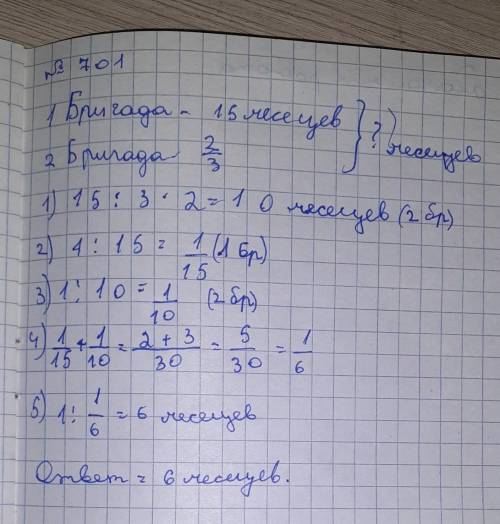 № 701
1 Бригада - 15 месецев } ?) месецев
2 Бригада - 2/3
1) 15 : 3 · 2 = 10 месецев (2 бр)
2) 1 : 15 = 1/15 (1 бр)
3) 1 : 10 = 1/10 (2 бр)
4) 1/15 + 1/10 = 2 + 3/30 = 5/30 = 1/6
5) 1 : 1/6 = 6 месецев
Ответ = 6 месецев.